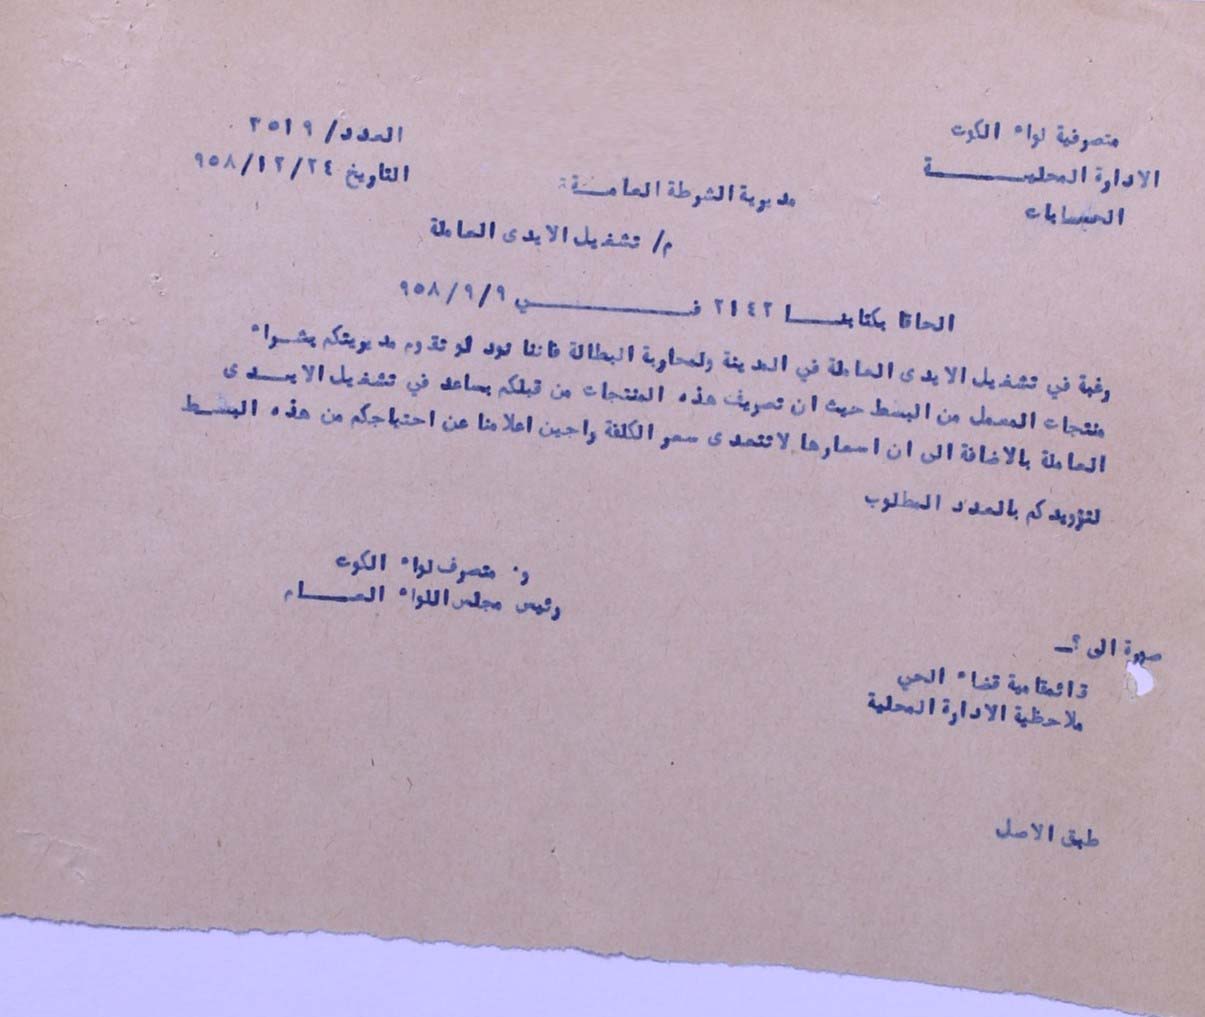 متصرفية لواء الكوت
العدد/ ٢٥١٩
الادارة المحليـــــــــة
التاريخ ٩٥٨/١٢/٢٤
الحسابات
مديرية الشرطة العامـــة
م/ تشغيل الايدى العاملة
الحاقا بكتابنـــــا ٢١٤٢ فـــــــــــــي ٩٥٨/٩/٩
رغبة في تشغيل الايدى العاملة في المدينة ولمحاربة البطالة فاننا نود لو تقوم مديريتكم بشــراء
منتجات المعمل من البسط حيث ان تصريف هذه المنتجات من قبلكم يساعد في تشغيل الايــدى
العاملة بالاضافة الى ان اسعارها لاتتعدى سعر الكلفة راجين اعلامنا عن احتياجكم من هذه البســط
لتزويدكم بالعدد المطلوب
و٠ متصرف لواء الكوت
رئيس مجلس اللواء العــــــام
صورة الى ؟ــ
قائمقامية قضاء الحي
ملاحظية الادارة المحلية
طبق الاصل